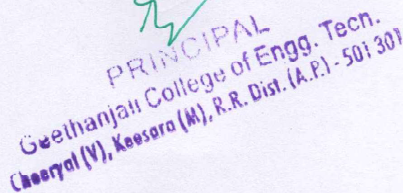 PRINCIPAL
Geethanjali College of Engg. Tecn.
Cheeryal (V), Keesara (M), R.R. Dist. (A.P.) - 501 301